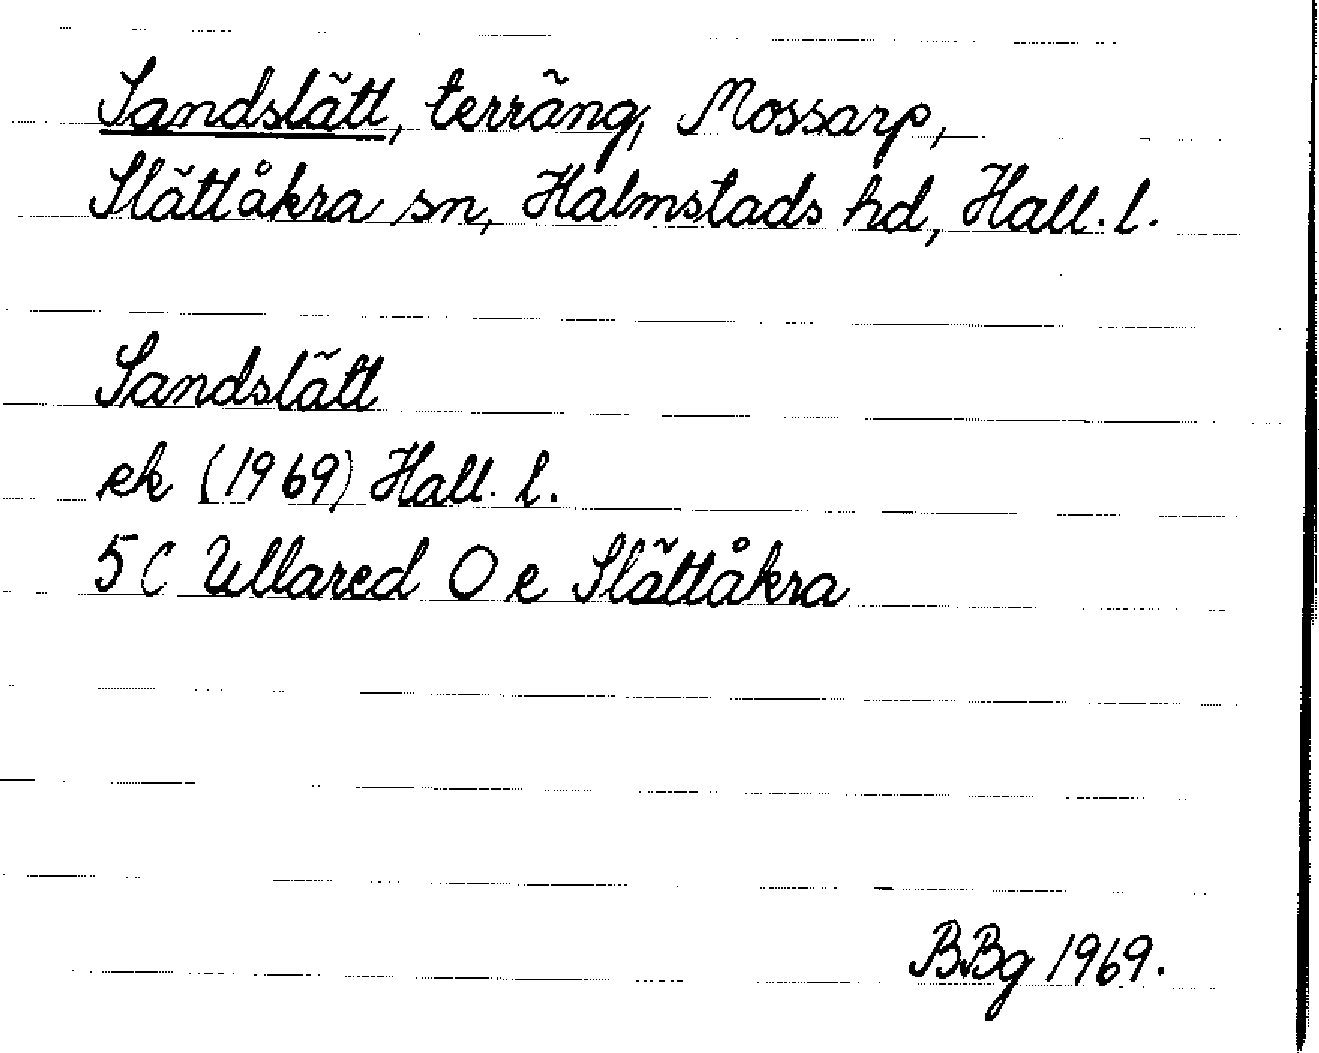 Sandslätt, terräng, Mossarp,
Slättåkra sn, Halmstads hd, Hall. l.
Sandslätt
ek (1969) Hall. l.
5C Ullared O e Slättåkra
BBg 1969.